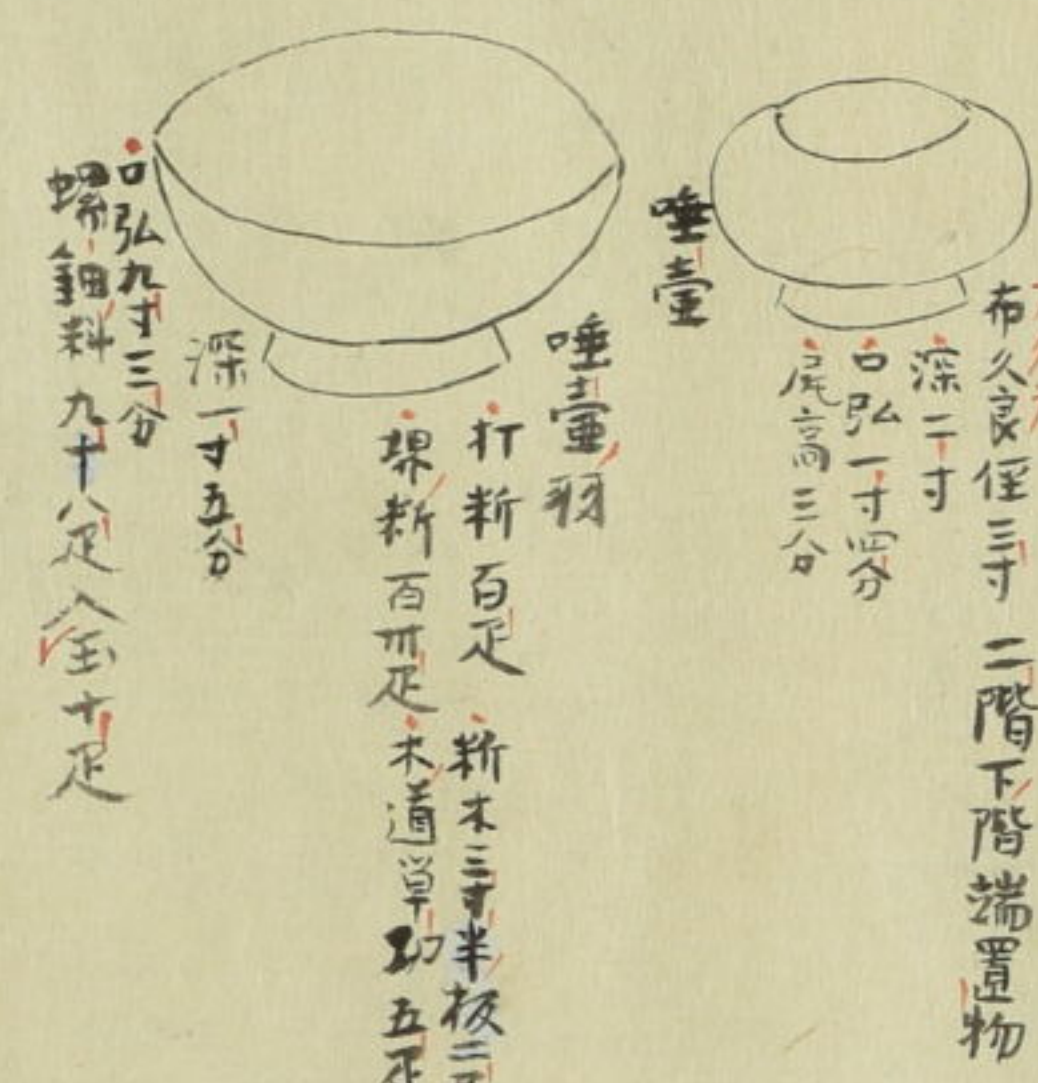 布久良径三寸 二階下階端置物
深二寸
口弘一寸四分
尻高三分
唾壷
唾壷羽
打料百疋
料木三寸半板二
料百卅疋
木道単功五疋
深一寸五分
口弘九寸三分
螺鈿料九十八疋 入玉十疋